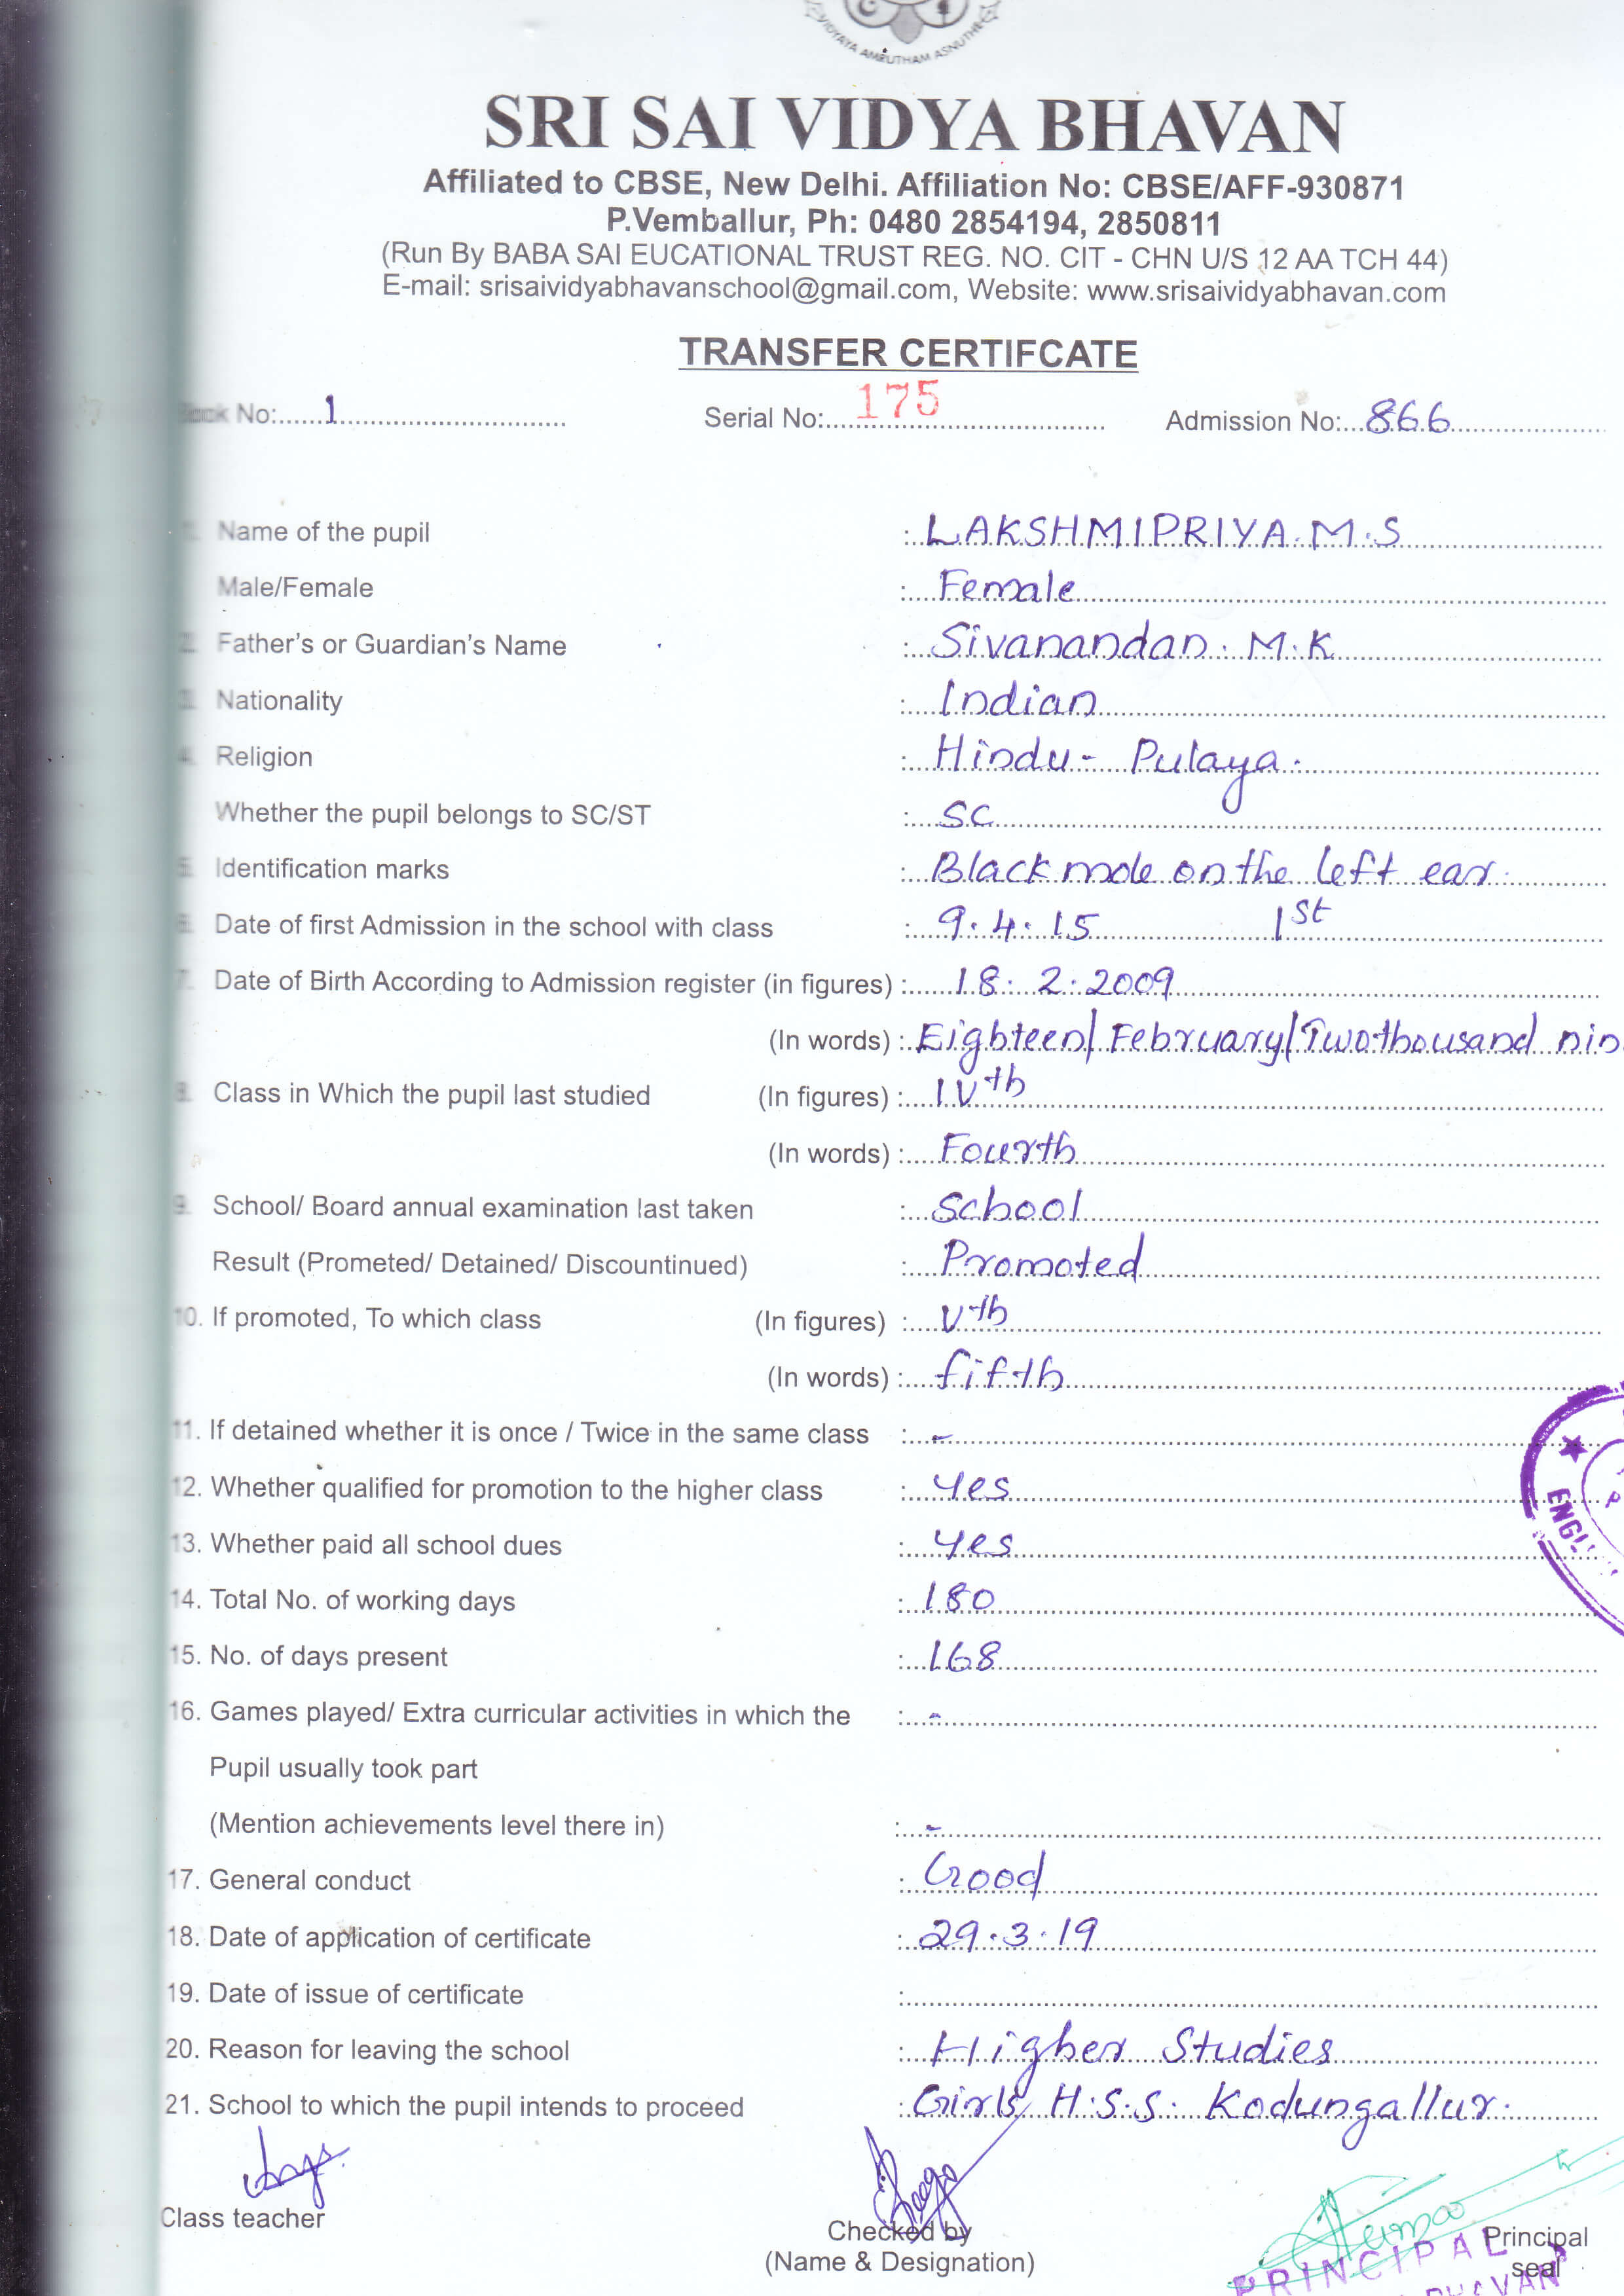 VIDYAYA AMRUTHAM ASNUTHE
SRI SAI VIDYA BHAVAN
Affiliated to CBSE, New Delhi. Affiliation No: CBSE/AFF-930871
P.Vemballur, Ph: 0480 2854194, 2850811
(Run By BABA SAI EUCATIONAL TRUST REG. NO. CIT - CHN U/S 12 AA TCH 44)
E-mail: srisaividyabhavanschool@gmail.com, Website: www.srisaividyabhavan.com
TRANSFER CERTIFCATE
Book No: 1 Serial No: 175 Admission No: 866
1. Name of the pupil : LAKSHMIPRIYA. M.S
Male/Female : Female
2. Father's or Guardian's Name : Sivanandan. M.K
3. Nationality : Indian
4. Religion : Hindu - Pulaya.
Whether the pupil belongs to SC/ST : SC
5. Identification marks : Black mole on the left ear.
6. Date of first Admission in the school with class : 9.4.15 1st
7. Date of Birth According to Admission register (in figures) : 18. 2. 2009
(In words) : Eighteen/February/Twothousand nin
8. Class in Which the pupil last studied (In figures) : IVth
(In words) : Fourth
9. School/ Board annual examination last taken : School
Result (Prometed/ Detained/ Discountinued) : Promoted
10. If promoted, To which class (In figures) : Vth
(In words) : fifth
11. If detained whether it is once / Twice in the same class : -
12. Whether qualified for promotion to the higher class : Yes
13. Whether paid all school dues : Yes
14. Total No. of working days : 180
15. No. of days present : 168
16. Games played/ Extra curricular activities in which the : -
Pupil usually took part
(Mention achievements level there in) : -
17. General conduct : Good
18. Date of application of certificate : 29.3.19
19. Date of issue of certificate :
20. Reason for leaving the school : Higher Studies
21. School to which the pupil intends to proceed : Girls H.S.S. Kodungallur.
Class teacher
Checked by
(Name & Designation)
Principal
seal
PRINCIPAL
BHAVAN